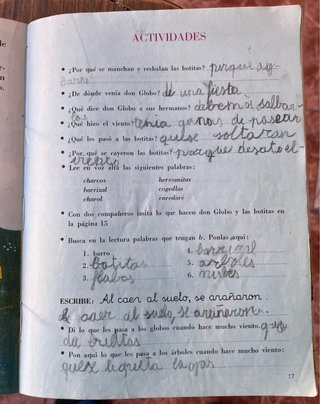 ACTIVIDADES
• ¿Por qué se manchan y resbalan las botitas? porque ay
barro
• ¿De dónde venía don Globo? de una fiesta
• ¿Qué dice don Globo a sus hermanos? debemos salbar
las
• ¿Qué hizo el viento? tenia ganas de pasear
• ¿Qué les pasó a las botitas? que se soltaran
• ¿Por qué se cayeron las botitas? porque desato el
viento
• Lee en voz alta las siguientes palabras:
charcos hermanitas
barrizal cogollas
charol enredaré
• Con dos compañeros imita lo que hacen don Globo y las botitas en
la página 15
• Busca en la lectura palabras que tengan b. Ponlas aquí:
1. barro 4. barrizal
2. botitas 5. arboles
3. 6. nubes
ESCRIBE: Al caer al suelo, se arañaron.
Al caer al suelo, se arañaron.
• Di lo que les pasa a los globos cuando hace mucho viento. que
da
• Pon aquí lo que les pasa a los árboles cuando hace mucho viento:
que se
17